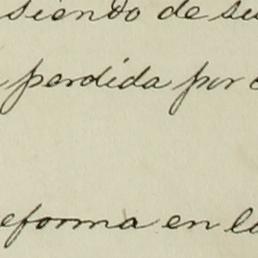 siendo de su
perdida por
eforma en la